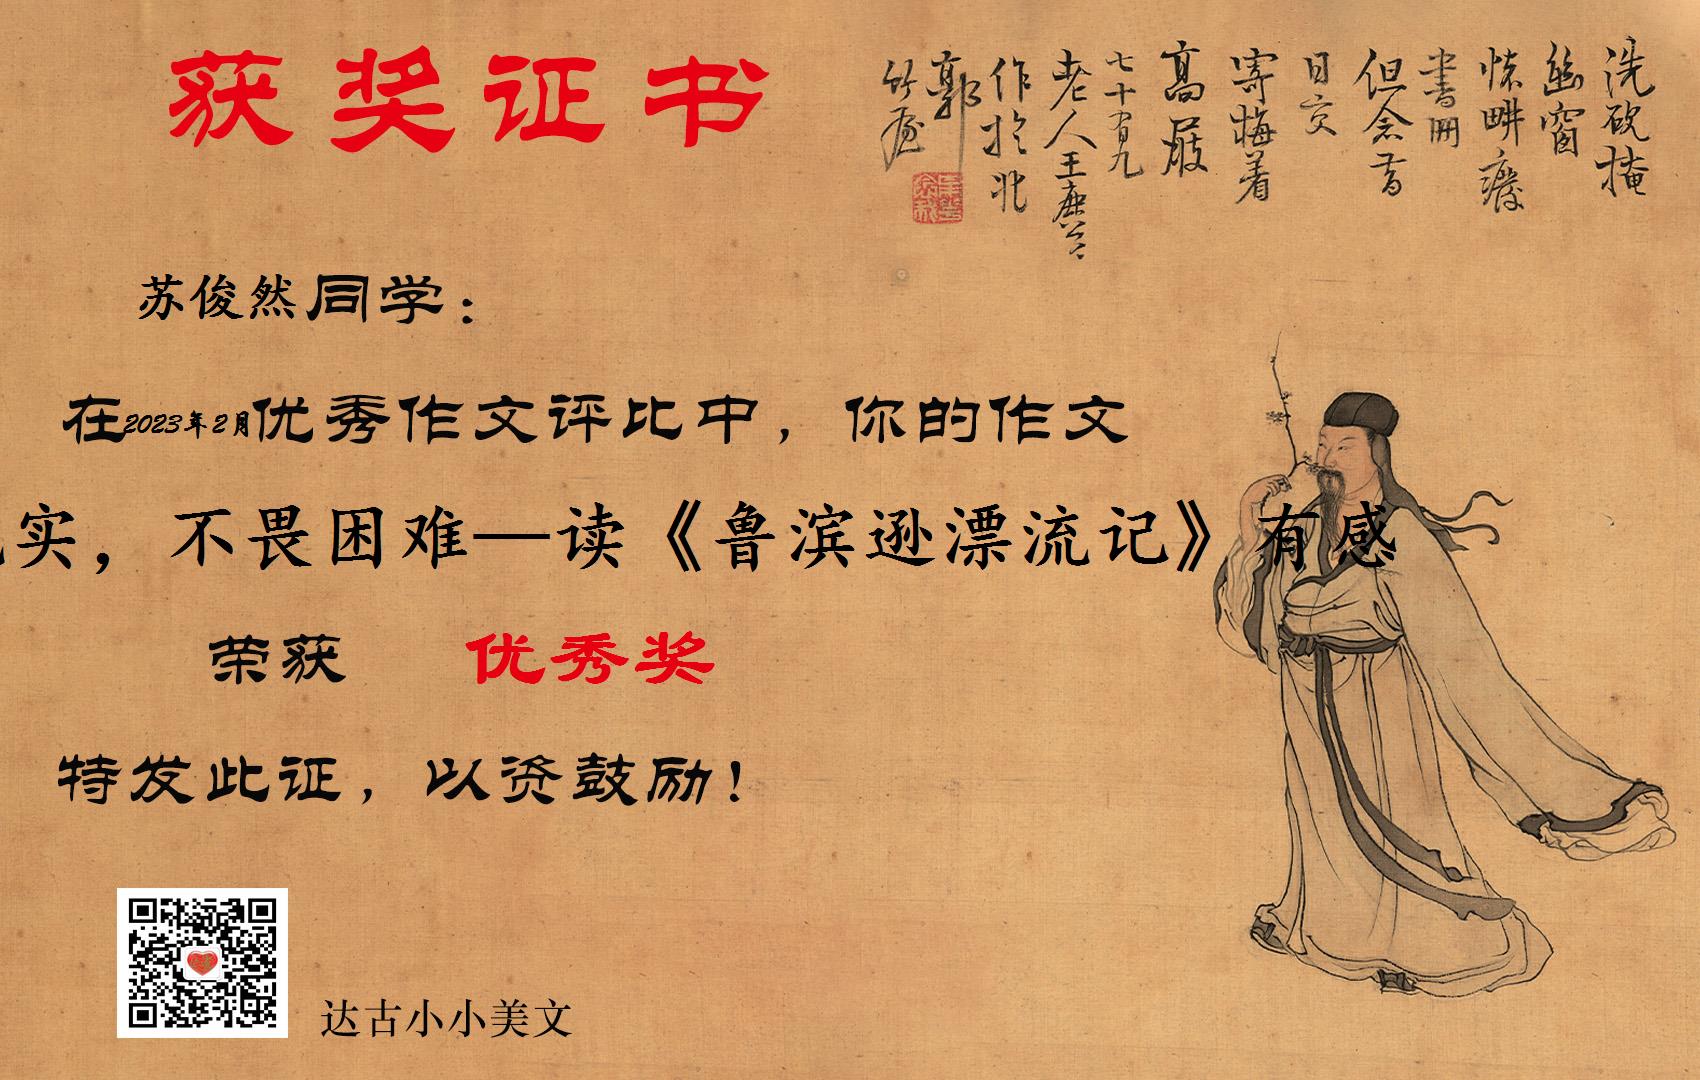 获奖证书
洗砚掩
幽窗
怀畊癈
書冊
但念昔
日交
寄梅着
高屐
七十有九
老人王鹿公
作於北
郭
竹庵
苏俊然同学：
在2023年2月优秀作文评比中，你的作文
实，不畏困难—读《鲁滨逊漂流记》有感
荣获 优秀奖
特发此证，以资鼓励！
达古小小美文